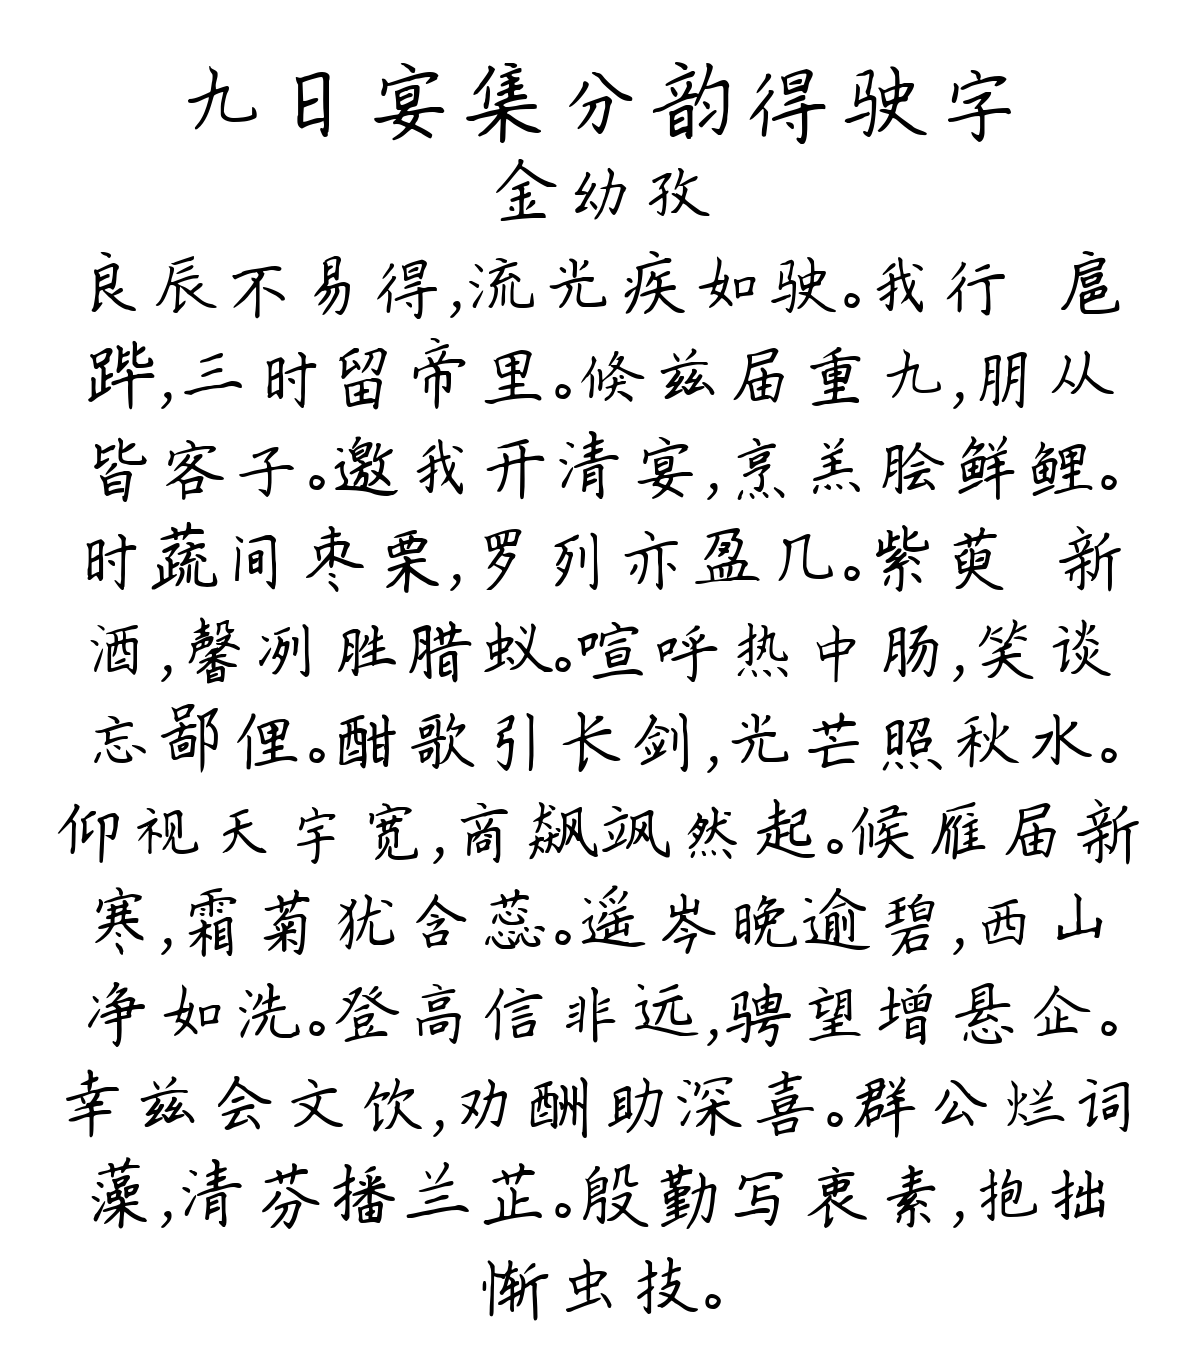 九日宴集分韵得驶字
金幼孜
良辰不易得,流光疾如驶。我行 扈
跸,三时留帝里。倏兹届重九,朋从
皆客子。邀我开清宴,烹羔脍鲜鲤。
时蔬间枣栗,罗列亦盈几。紫萸 新
酒,馨冽胜腊蚁。喧呼热中肠,笑谈
忘鄙俚。酣歌引长剑,光芒照秋水。
仰视天宇宽,商飙飒然起。候雁届新
寒,霜菊犹含蕊。遥岑晚逾碧,西山
净如洗。登高信非远,骋望增悬企。
幸兹会文饮,劝酬助深喜。群公烂词
藻,清芬播兰芷。殷勤写衷素,抱拙
惭虫技。